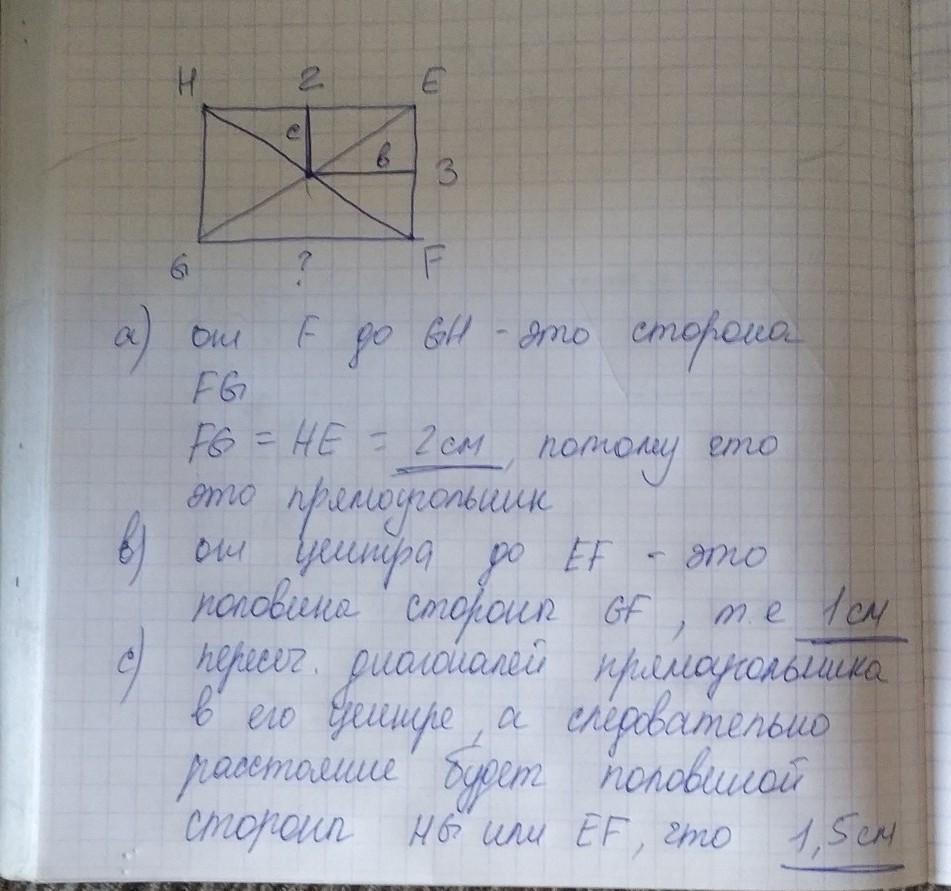 H 2 E
c
в 3
G ? F
а) от F до GH - это сторона
FG
FG = HE = 2 см, потому что
это прямоугольник
в) от центра до EF - это
половина стороны GF, т.е 1 см
с) пересеч. диагоналей прямоугольника
в его центре, а следовательно
расстояние будет половиной
стороны HG или EF, что 1,5 см